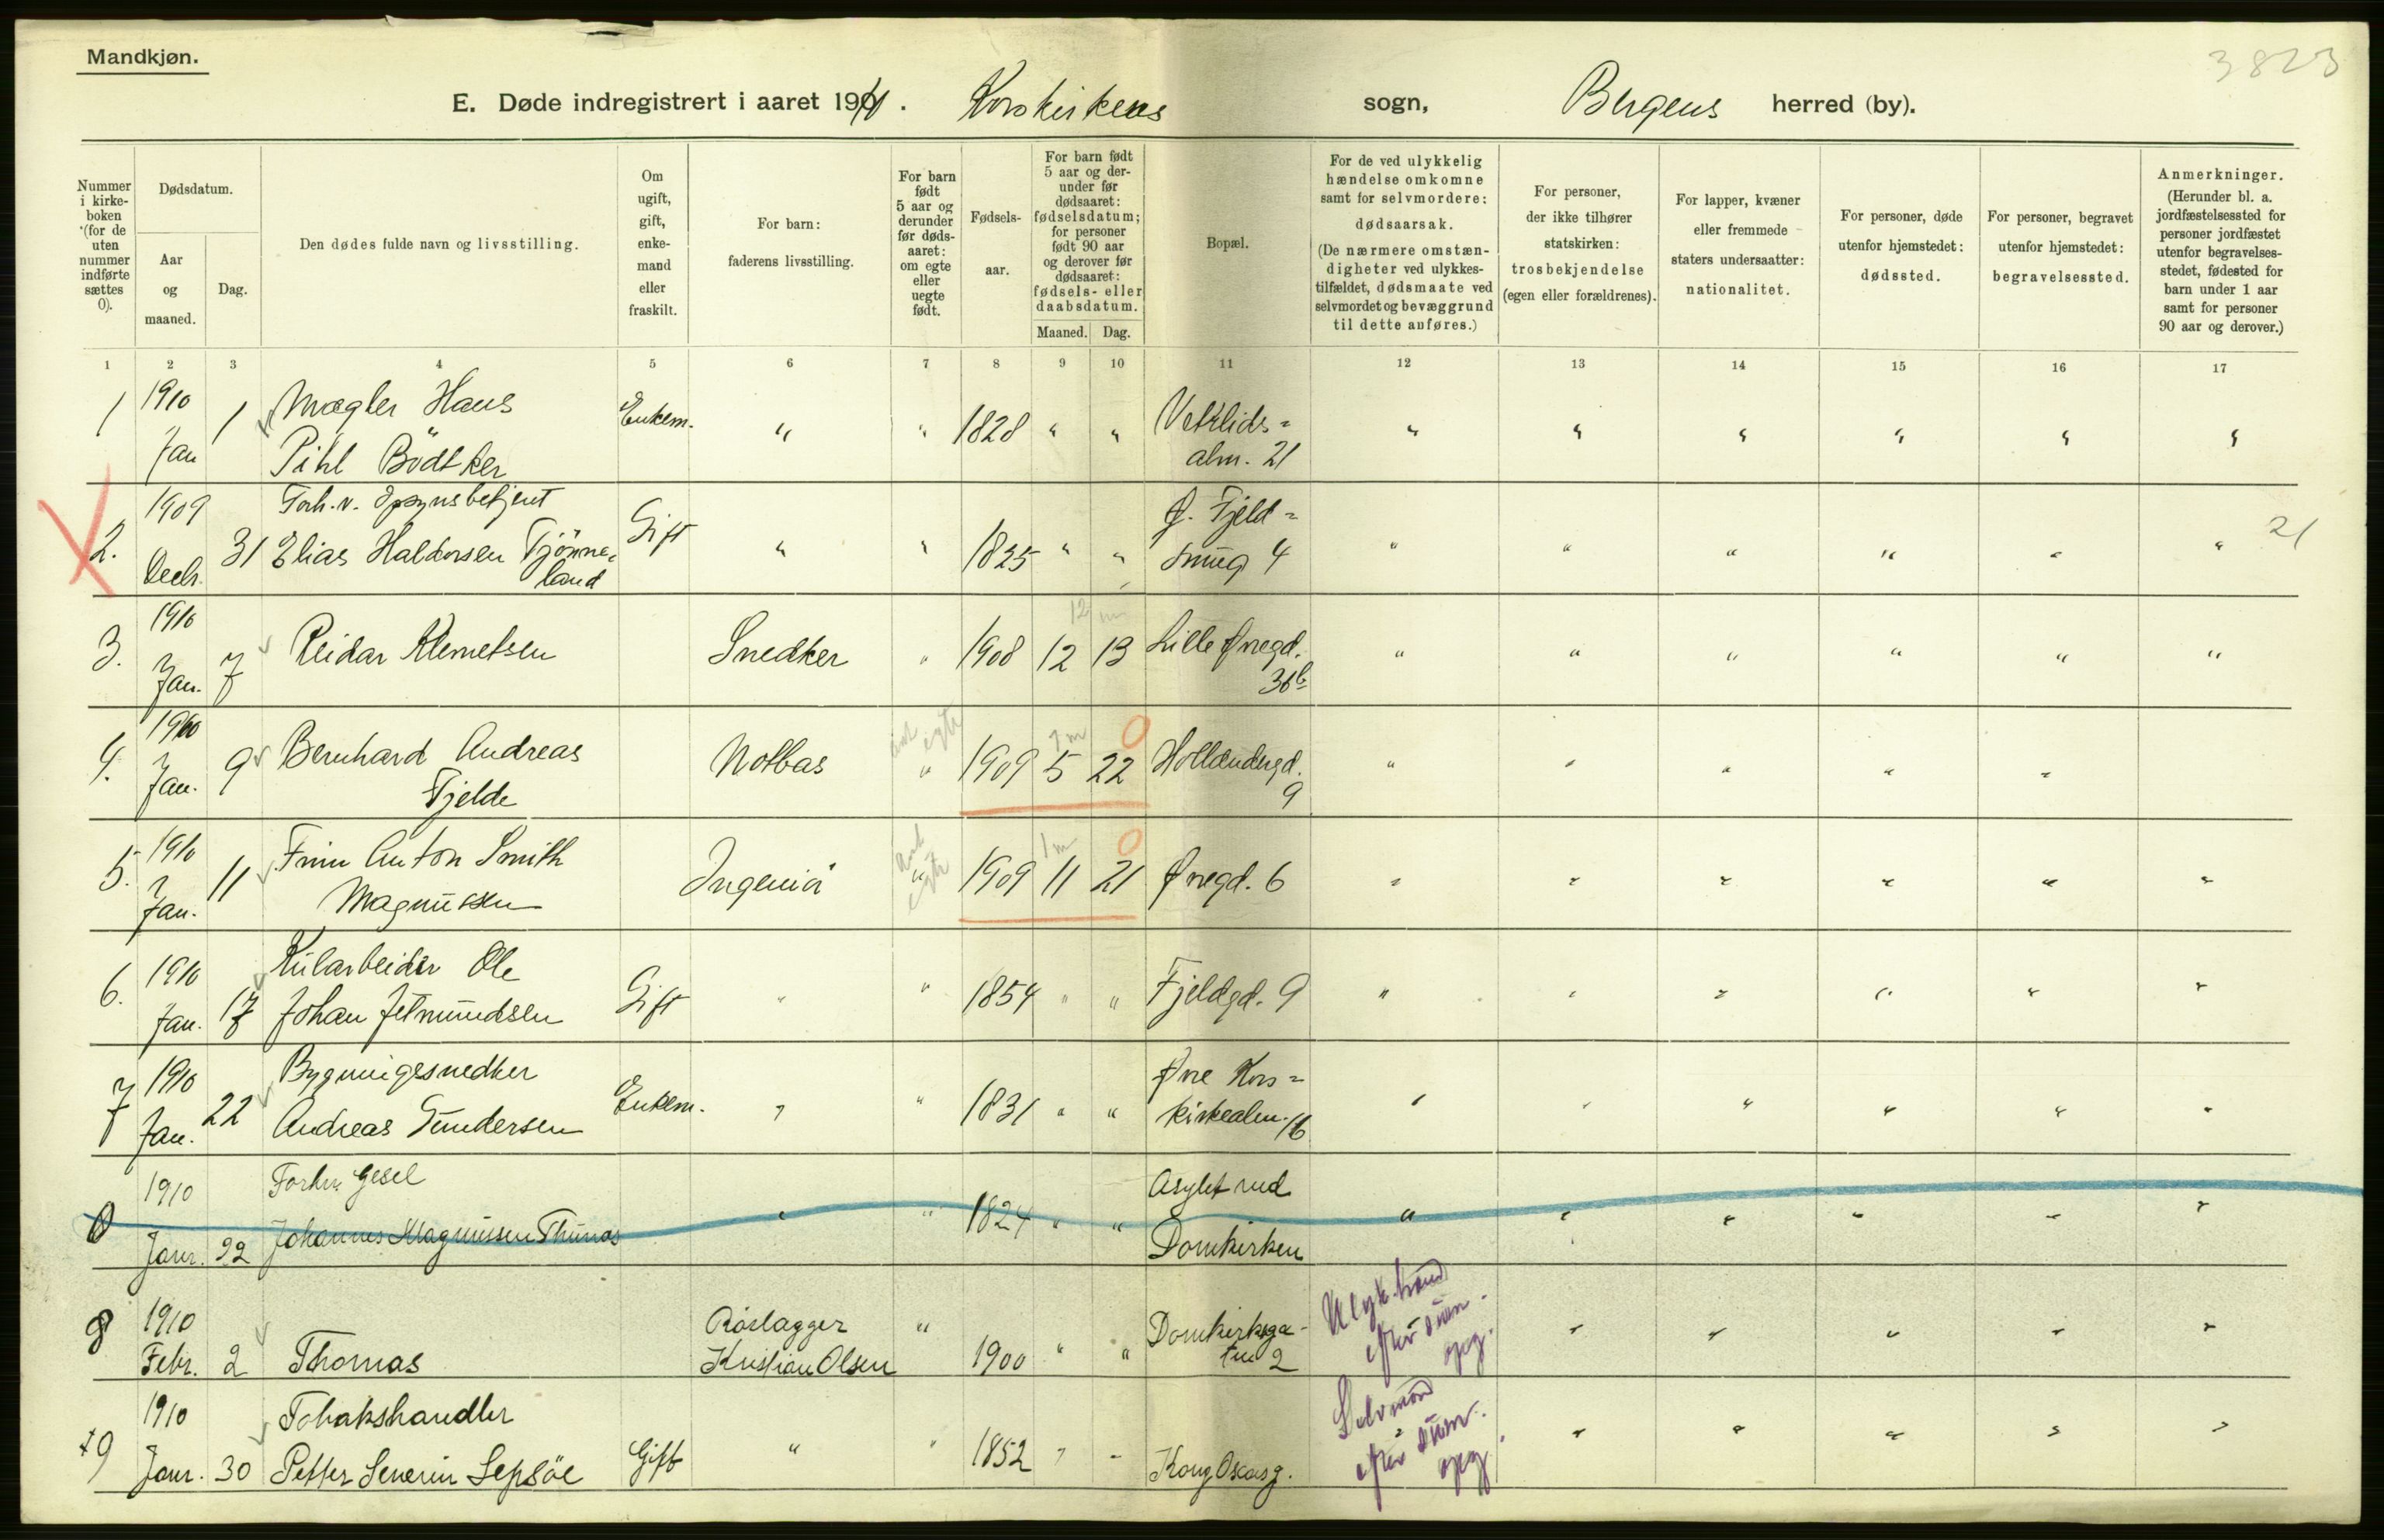 Mandkjøn.
3823
E. Døde indregistrert i aaret 1910. Korskirkens sogn, Bergens herred (by).
Nummer i kirke- boken (for de uten nummer indførte sættes 0).
Dødsdatum.
Aar og maaned.
Dag.
Den dødes fulde navn og livsstilling.
Om ugift, gift, enke- mand eller fraskilt.
For barn: faderens livsstilling.
For barn født 5 aar og derunder før døds- aaret: om egte eller uegte født.
Fødsels- aar.
For barn født 5 aar og der- under før dødsaaret: fødselsdatum; for personer født 90 aar og derover før dødsaaret: fødsels- eller daabsdatum.
Maaned. Dag.
Bopæl.
For de ved ulykkelig hændelse omkomne samt for selvmordere: dødsaarsak. (De nærmere omstæn- digheter ved ulykkes- tilfældet, dødsmaate ved selvmordet og bevæggrund til dette anføres.)
For personer, der ikke tilhører statskirken: trosbekjendelse (egen eller forældrenes).
For lapper, kvæner eller fremmede staters undersaatter: nationalitet.
For personer, døde utenfor hjemstedet: dødssted.
For personer, begravet utenfor hjemstedet: begravelsessted.
Anmerkninger. (Herunder bl. a. jordfæstelsessted for personer jordfæstet utenfor begravelses- stedet, fødested for barn under 1 aar samt for personer 90 aar og derover.)
1 2 3 4 5 6 7 8 9 10 11 12 13 14 15 16 17
1 1910 Jan 1 Mægler Hans Pihl Bödtker Enkem. " " 1828 " " Vetrlids= alm. 21 " " " " " "
2. 1909 Decbr. 31 Forh.v. Opsynsbetjent Elias Haldorsen Tjönne= land Gift " " 1825 " " Ø. Fjeld= smug 4 " " " " " " 21
3. 1910 Jan. 7 Reidar Klemetsen Snedker " 1908 12 13 Lille Øvregd. 36b " " " " " "
12 m
4. 1910 Jan. 9 Bernhard Andreas Fjelde Notbas " egte 1909 5 22 Hollændergd. 9 " " " " "
7 m 0
5. 1910 Jan. 11 Finn Anton Smith Magnussen Ingeniör " egte 1909 11 21 Øvregd. 6 " " " " " "
1 m 0
6. 1910 Jan. 17 Kularbeider Ole Johan Jetmundsen Gift " " 1854 " " Fjeldgd. 9 " " " " " "
7 1910 Jan. 22 Bygningssnedker Andreas Gundersen Enkem. " " 1831 " " Øvre Kors= kirkealm. 16 " " " " " "
0 1910 Janr. 22 Forhv. Gesel Johannes Magnussen Thunæs " " 1824 " " Asylet ved Domkirken " " " " " "
8 1910 Febr. 2 Thomas Rörlægger Kristian Olsen " 1900 " " Domkirkega- ten 2 " " " " "
9 1910 Janr. 30 Tobakshandler Petter Severin Lepsöe Gift " " 1852 " " Kong Oscarsg. Selvmord " " " " "